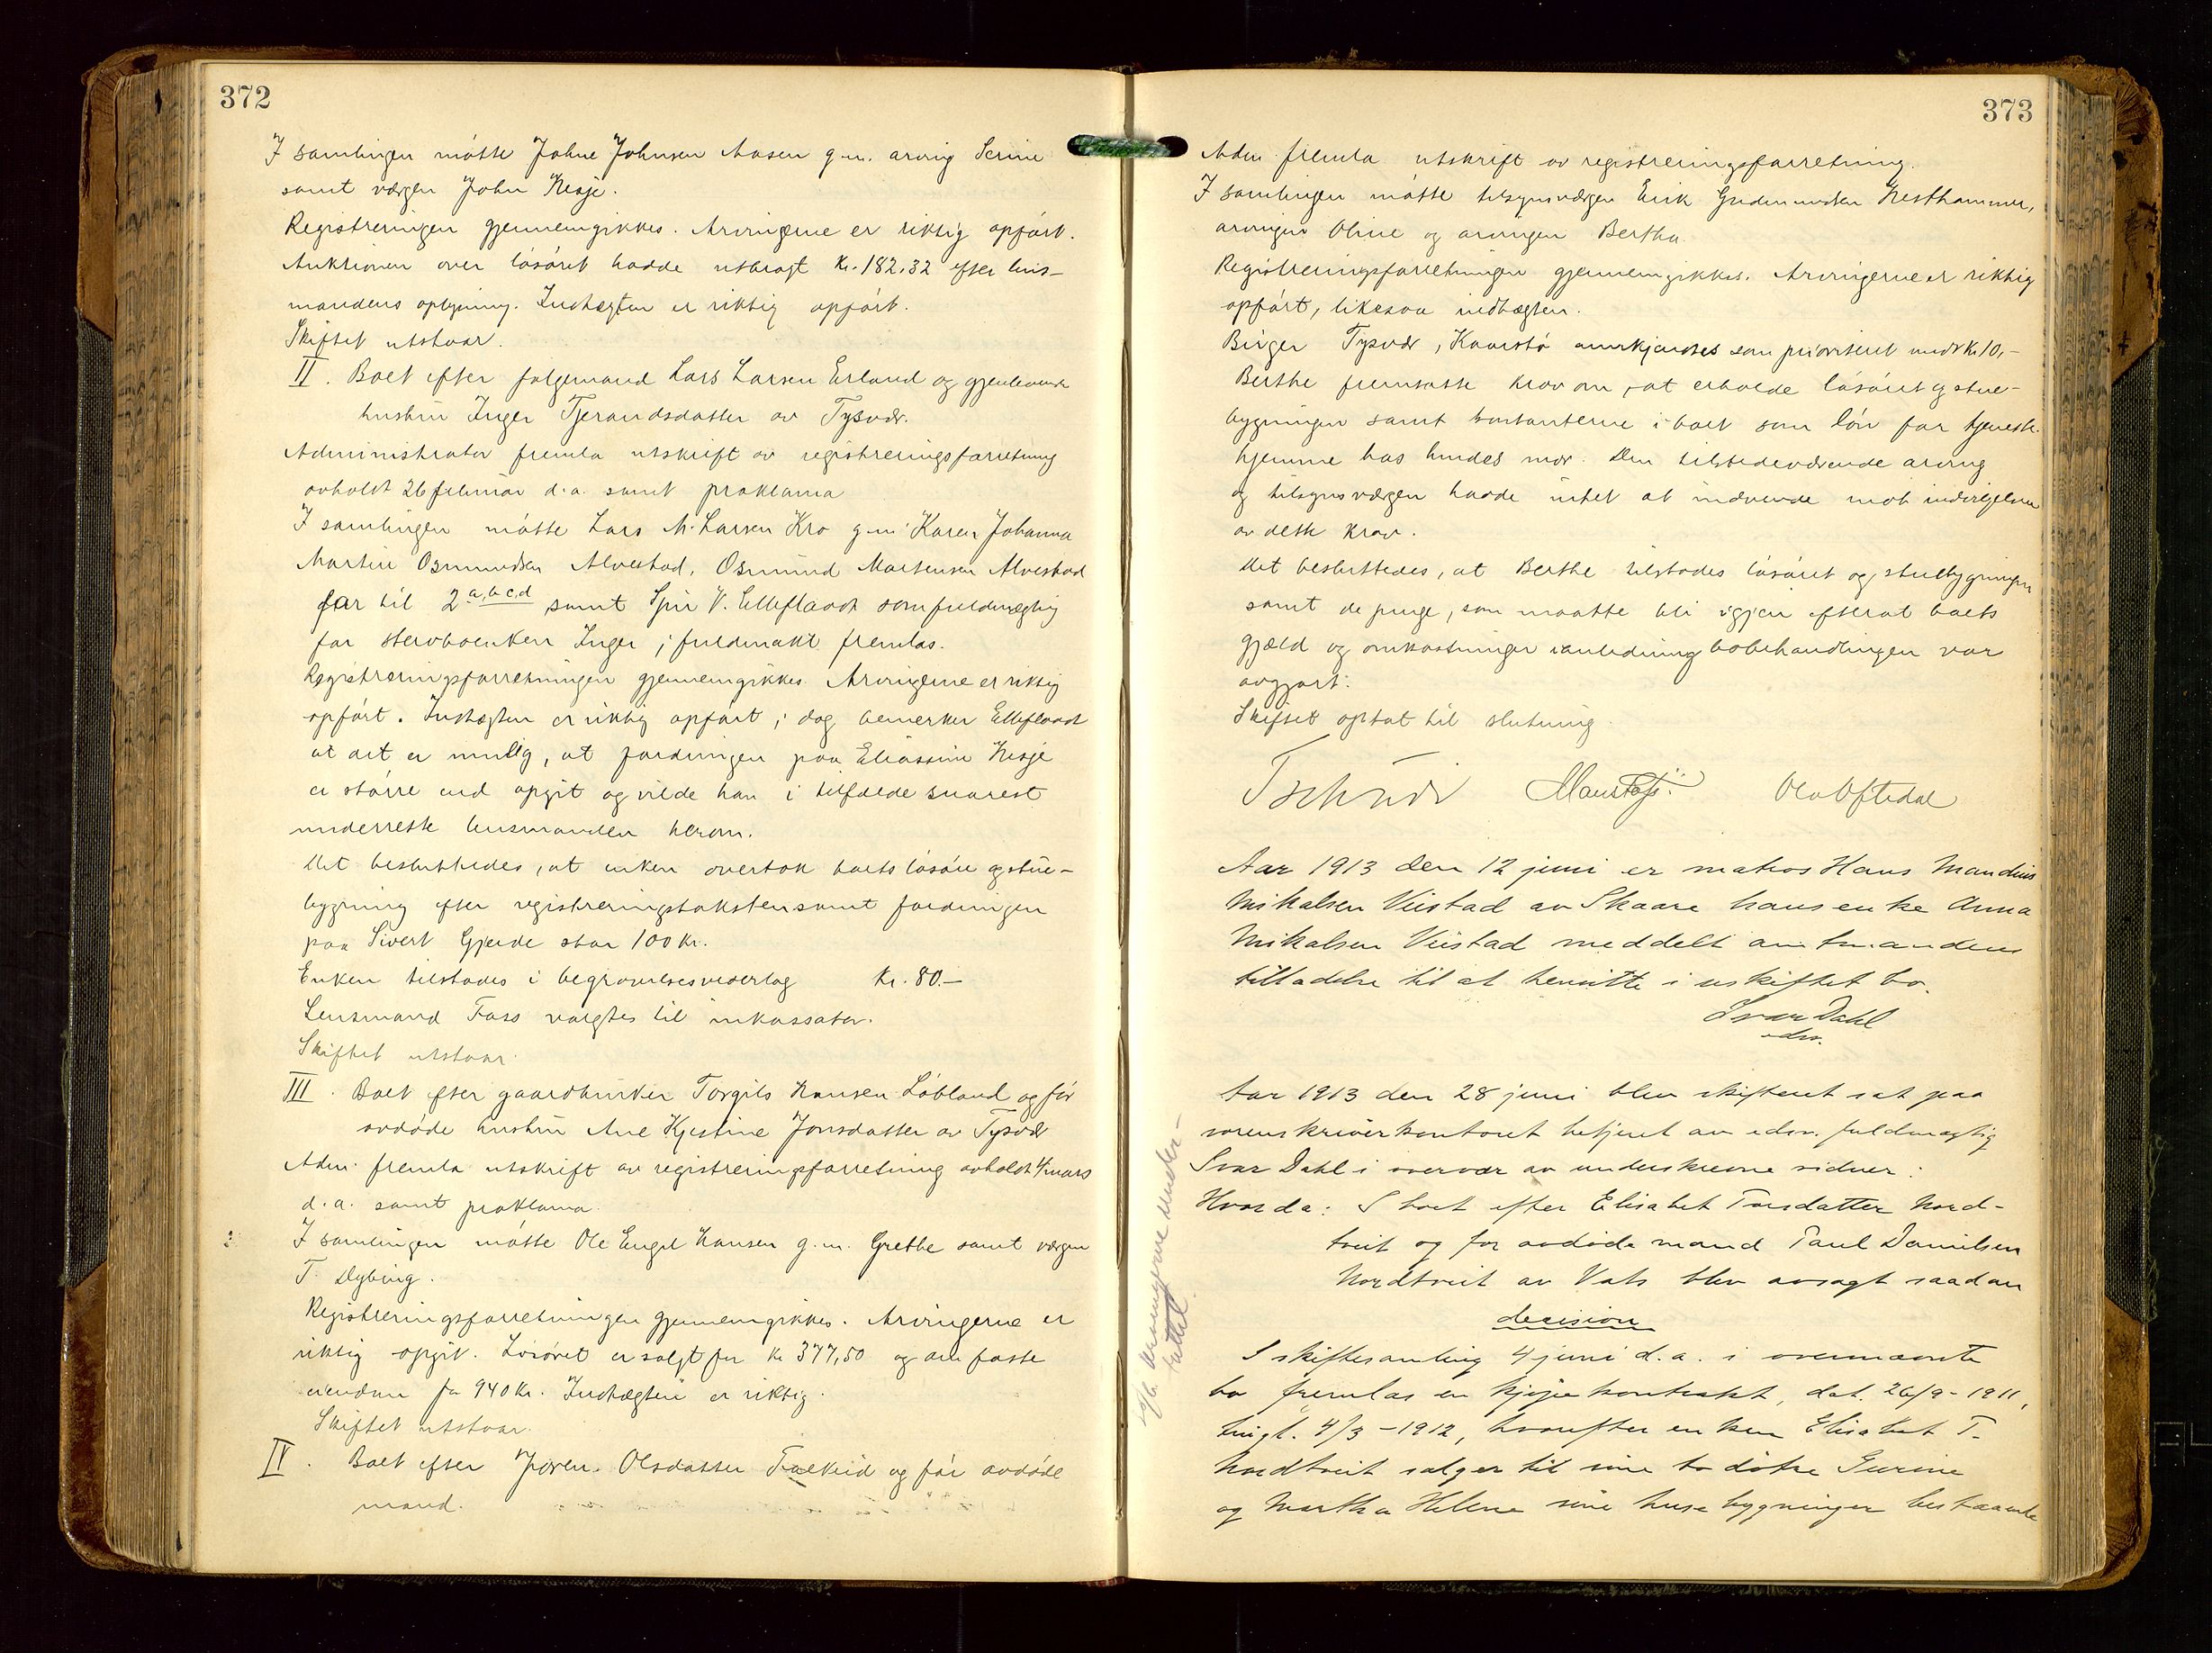 372
I samlingen møtte Johne Johnsen Aasen g.m. arving Serine
samt værgen John Nesje.
Registreringen gjennemgikkes. Arvingerne er riktig opført.
Auktionen over løsøret hadde utbragt Kr. 182,32 efter lens-
mandens oplysning. Indtægten er riktig opført.
Skiftet utstaar.
II. Boet efter folgemand Lars Larsen Erland og gjenlevende
hustru Inger Tjerandsdatter av Tysvær.
Administrator fremla utskrift av registreringsforretning
avholdt 26 februar d.a. samt proklama
I samlingen møtte Lars M. Larsen Kro g.m. Karen Johanna
Martin Osmundsen Alvestad, Osmund Martensen Alvestad
for til 2 a, b c, d samt V. Elleflaadt som fuldmægtig
for stervboenken Inger; fuldmakt fremlas.
Registreringsforretningen gjennemgikkes Arvingerne er riktig
opført. Indtægten er riktig opført; dog bemerker Elleflaadt
at det er mulig, at fordringen paa Eliassine Nesje
er større end opgit og vilde han i tilfælde snarest
underrette lensmanden herom.
Det besluttedes, at enken overtok boets løsøre og stue-
bygning efter registreringstaksten samt fordringen
paa Sivert Gjerde stor 100 kr.
Enken tilstodes i begravelsesvederlag Kr. 80.–
Lensmand Fass valgtes til inkassator.
Skiftet utstaar.
III. Boet efter gaardbruker Torgils Hansen Løbland og før
avdøde hustru Ane Kjestine Jonsdatter av Tysvær
Adm. fremla utskrift av registreringsforretning avholdt 4/mars
d.a. samt proklama.
I samlingen møtte Ole Engel Hansen g.m. Grethe samt værgen
T. Dybing.
Registreringsforretningen gjennemgikkes. Arvingerne er
riktig opgit. Løsøret er solgt for kr 377,50 og den faste
eiendom for 940 kr. Indtægten er riktig.
Skiftet utstaar.
IV. Boet efter Joren Olsdatter Falkeid og før avdøde
mand.
373
Adm fremla utskrift av registreringsforretning.
I samlingen møtte tilsynsværgen Erik Gudmundsen Nesthammer,
arvingen Oline og arvingen Bertha.
Registreringsforretningen gjennemgikkes. Arvingerne er riktig
opført, likesaa indtægten.
Birger Tysvær, Kaarstø anerkjendtes som prioritert med kr 10,–
Berthe fremsatte krav om, at erholde løsøret og stue-
bygningen samt kontanterne i boet som løn for tjeneste
hjemme hos hendes mor. Den tilstedeværende arving
og tilsynsværgen hadde intet at indvende mot indvilgelsen
av dette krav.
Det besluttedes, at Berthe tilstodes løsøret og stuebygningen
samt de penge, som maatte bli igjen efterat boets
gjæld og omkostninger i anledning bobehandlingen var
avgjort.
Skiftet optat til slutning.
Tschudi Ola Oftedal
Aar 1913 den 12 juni er matros Hans Mandius
Mikalsen Viistad av Skaare hans enke Anna
Mikalsen Viistad meddelt amtmandens
tilladelse til at hensitte i uskiftet bo.
Ivar Dahl
edsv.
Aar 1913 den 28 juni blev skifteret sat paa
sorenskriverkontoret betjent av edsv. fuldmægtig
Ivar Dahl i overvær av underskrevne vidner:
Hvorda: I boet efter Elisabet Torsdatter Nord-
tveit og for avdøde mand Paul Danielsen
Nordtveit av Vats blev avsagt saadan
decision
I skiftesamling 4 juni d.a. i ovennævnte
bo fremlas en kjøpekontrakt, dat. 26/9-1911,
tingl. 4/3-1912, hvorefter enken Elisabet T.
Nordtveit sælger til sine to døtre Gurine
og Martha Helene sine huse bygninger bestaaende
arvingerne under-
rettet.